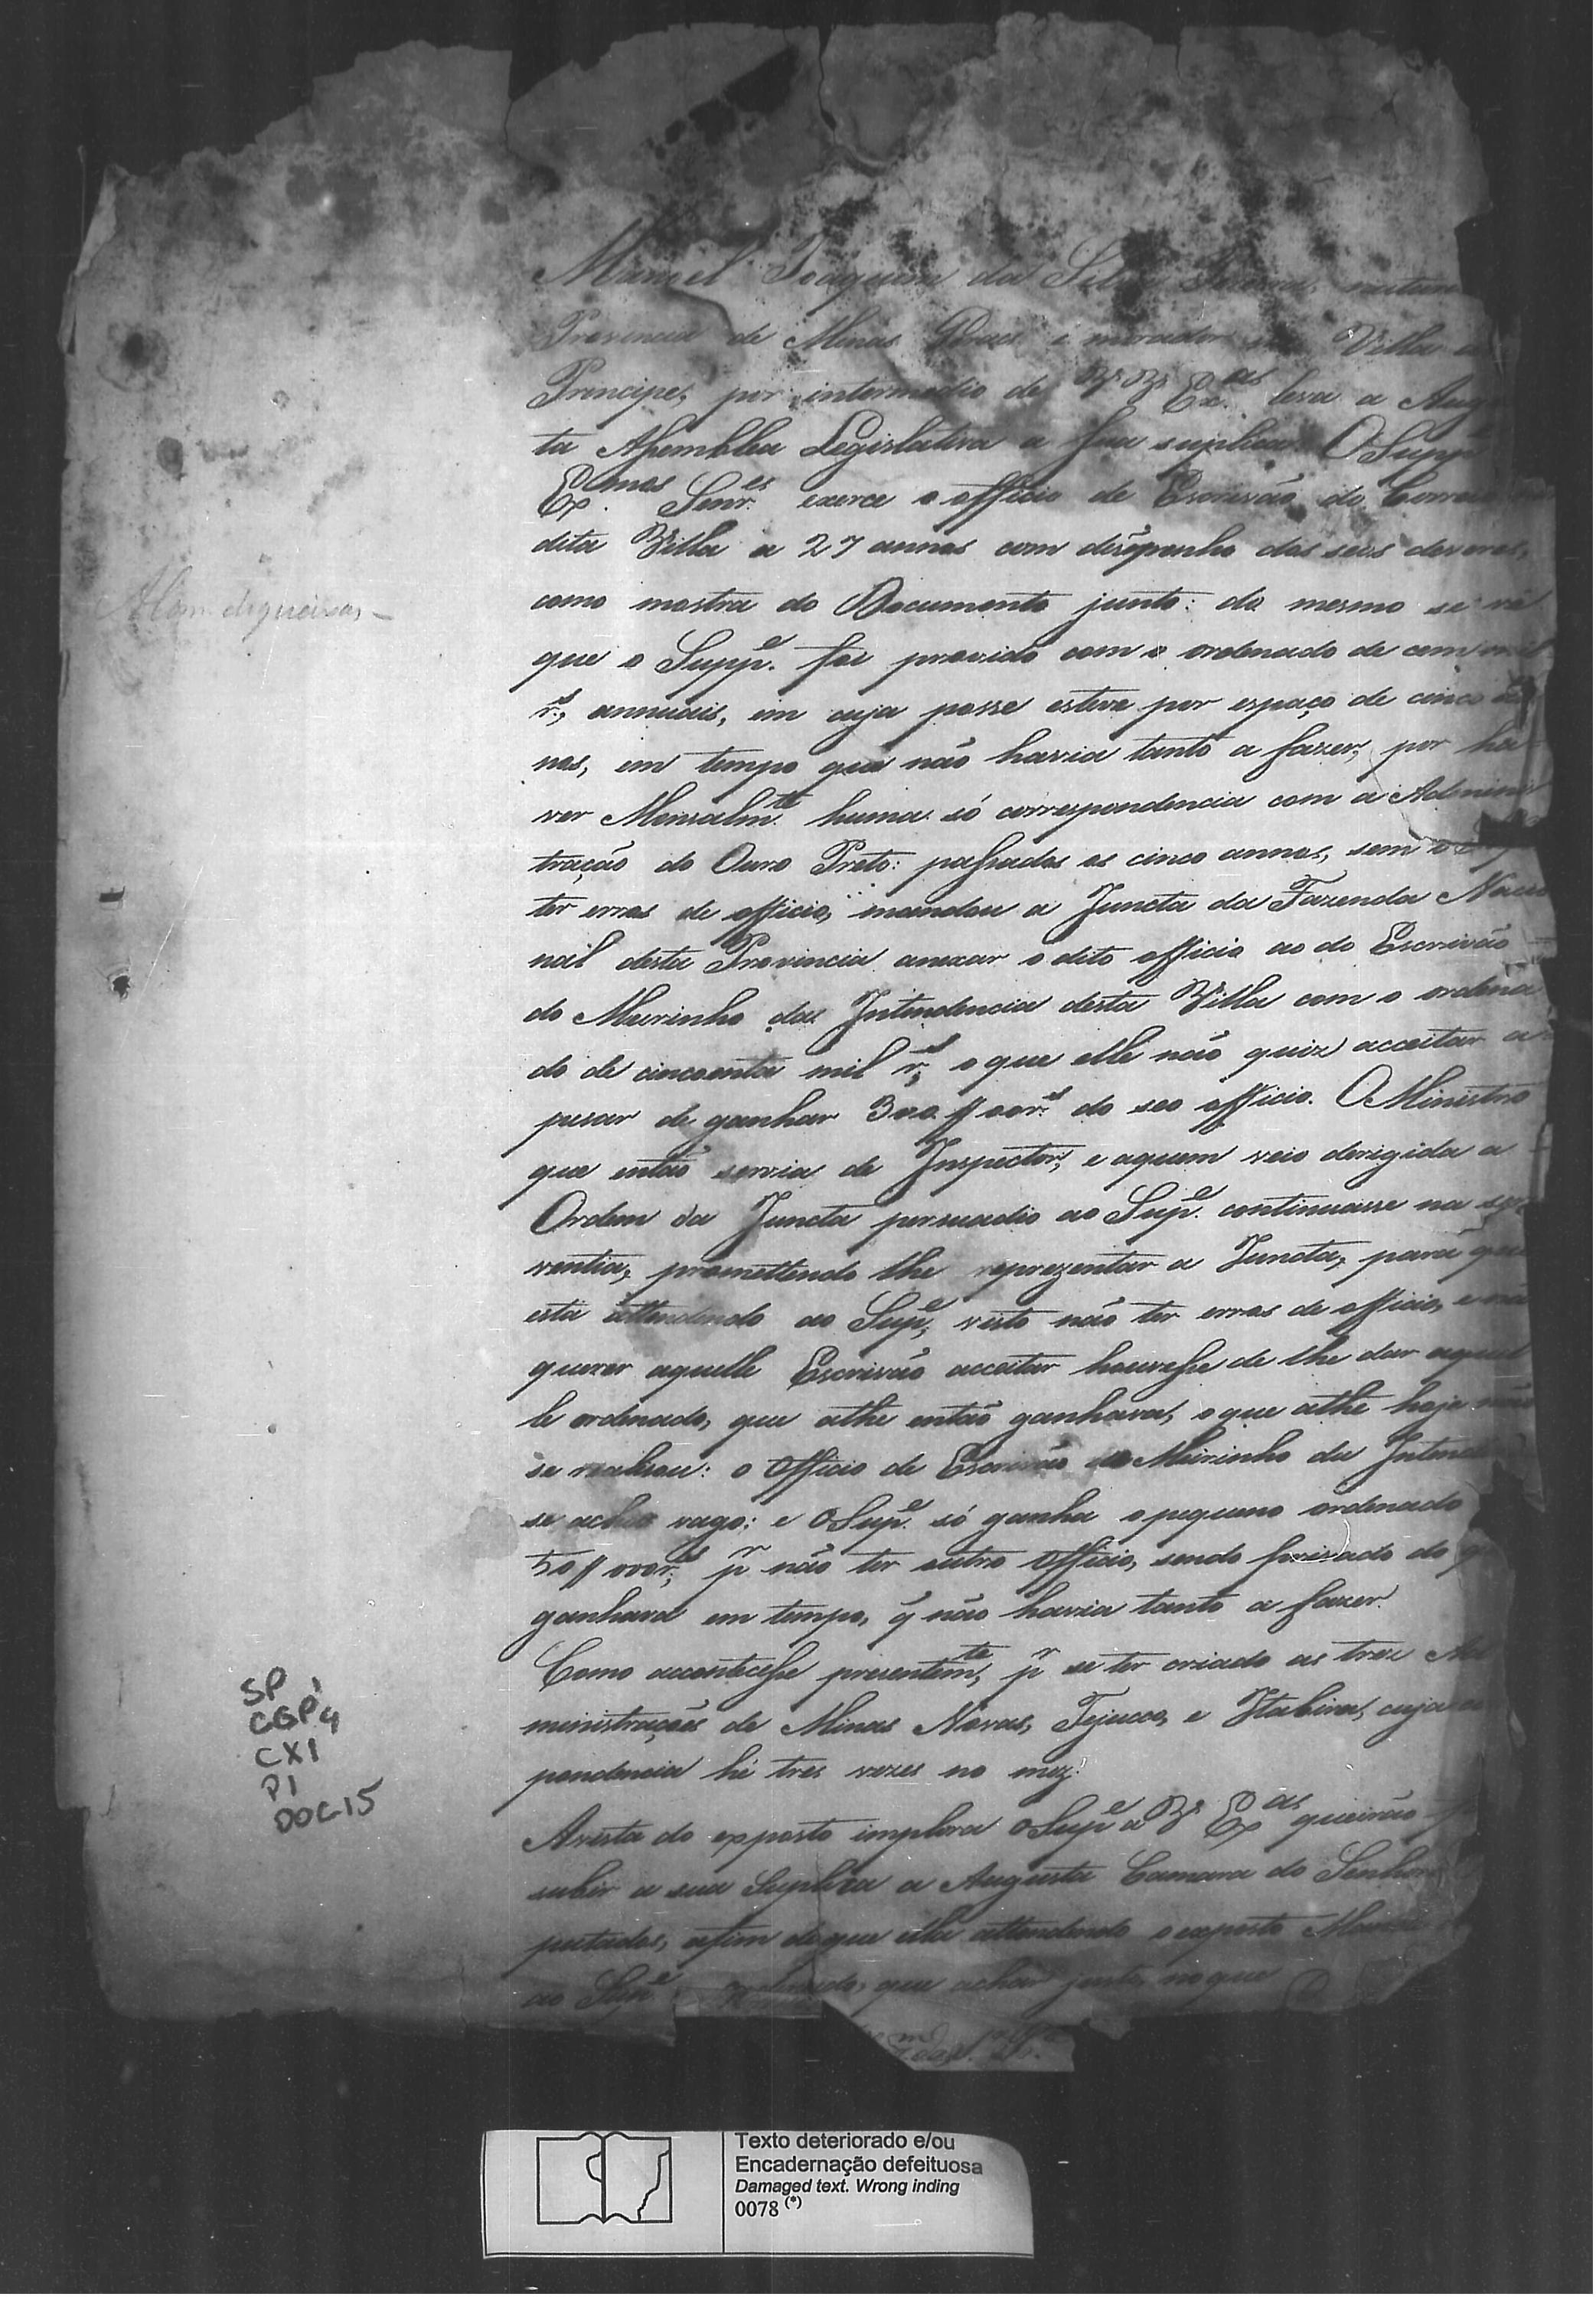 Manoel Joaquim da Silva
Provincia de Minas Geraes e morador na Villa
Principe, por intermedio de VV. Ex.as leva a Aug
ta Assemblea Legislativa a sua suplica. O Supp.e
Ex.mos Senr.es exerce o officio de Escrivão do Corre
dita Villa a 27 annos com desempenho dos seus deveres,
como mostra do Documento junto: do mesmo se vê
que o Supp.e foi provido com o ordenado de cem mil
r.s, annuais, em cuja posse esteve por espaço de cinco an
nos, em tempo que não havia tanto a fazer, por ha-
ver Mensalm.te huma só correspondencia com a Adminis
tração do Ouro Preto: passados os cinco annos, sem o
ter erros de officio, mandou a Juncta da Fazenda Nacio
nal desta Provincia anexar o dito officio ao do Escrivão
do Meirinho da Intendencia desta Villa com o ordena
do de cincoenta mil r.s, o que elle não quiz acceitar a-
pesar de ganhar 300//00r.s do seo officio. O Ministro
que então servia de Inspector, e aquem veio derigida a
Ordem da Juncta persuadio ao Sup.e continuasse na ser
ventia, promettendo lhe reprezentar a Juncta, para que
esta attendendo ao Sup.e, visto não ter erros de officio, e não
querer aquelle Escrivão acceitar houvesse de lhe dar aquel
le ordenado, que athe então ganhava, o que athe hoje não
se realisou: o Officio de Escrivão do Meirinho da Inten
se acha vago: e o Sup.e só ganha o pequeno ordenado
50//000r.s, p.r não ter outro Officio, sendo privado do q
ganhava em tempo, q̃ não havia tanto a fazer.
Como acontecesse presentem.te, p.r se ter criado as tres Ad
ministrações de Minas Novas, Tejuco, e Itabira, cuja co
pondencia hé tres vezes no mez.
Avista do exposto implora o Sup.e a V. Ex.as queirão
subir a sua Suplica a Augusta Camara do Senhor
putados, afim de que ella attendendo o exposto Mande
ao Sup.e ordenado, que achar justo, no que
SP
CGP4
CX1
P1
DOC-15
Texto deteriorado e/ou
Encadernação defeituosa
Damaged text. Wrong inding
0078 (*)